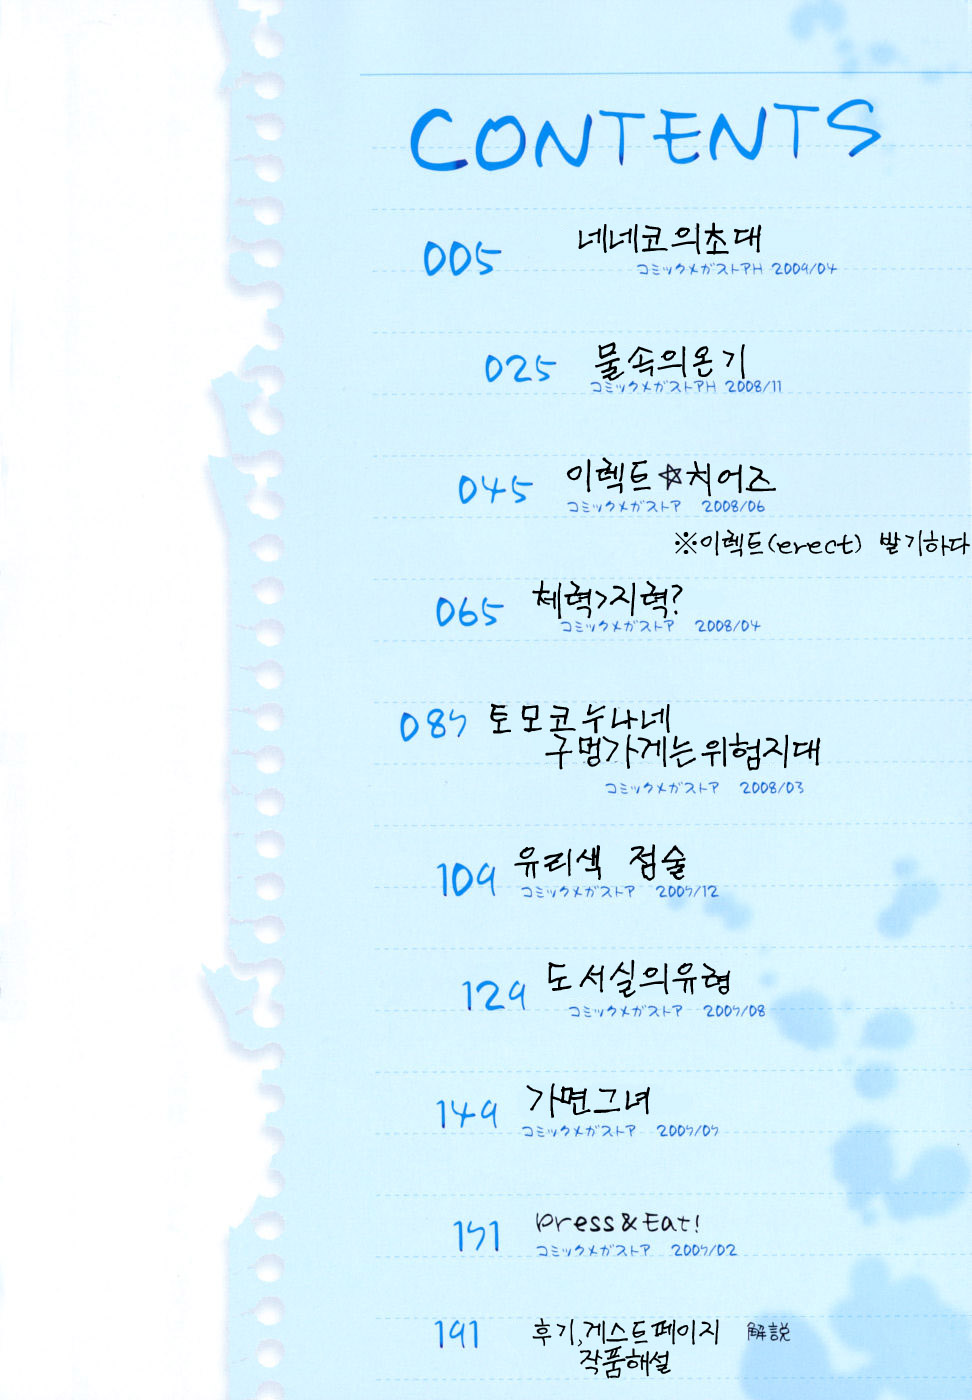 CONTENTS
005 네네코의초대
コミックメガストアH 2009/04
025 물속의온기
コミックメガストアH 2008/11
045 이렉트☆치어즈
コミックメガストア 2008/06
※이렉트(erect) 발기하다
065 체력>지력?
コミックメガストア 2008/04
087 토모코누나네
구멍가게는위험지대
コミックメガストア 2008/03
109 유리색 점술
コミックメガストア 2007/12
129 도서실의유령
コミックメガストア 2007/08
149 가면그녀
コミックメガストア 2007/07
171 Press&Eat!
コミックメガストア 2007/02
191 후기,게스트페이지 解説
작품해설